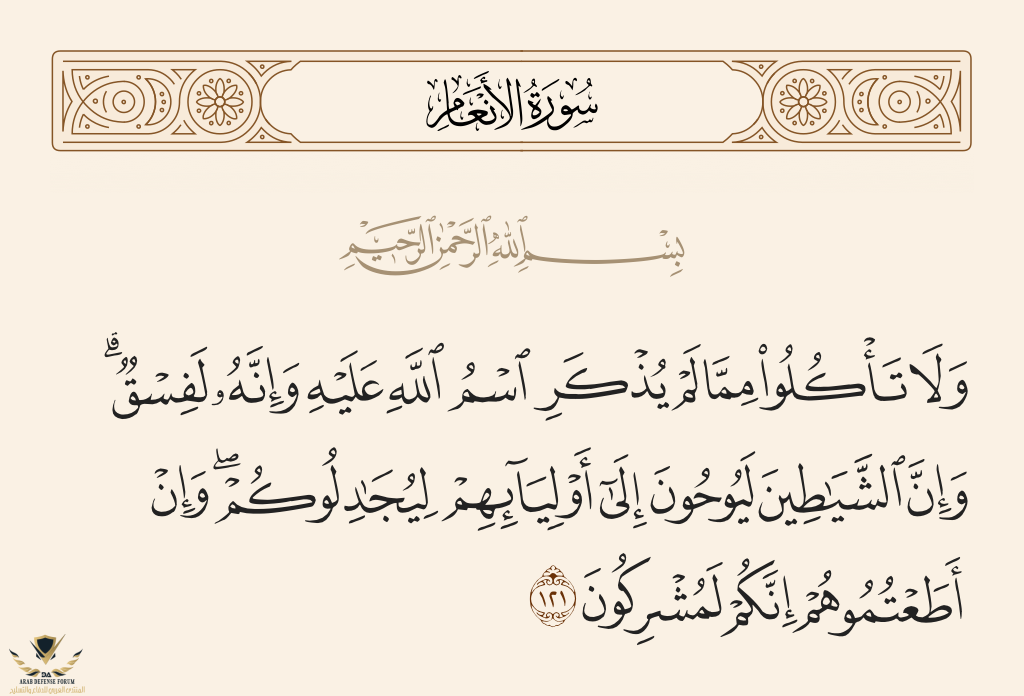 سُورَةُ الأَنْعَامِ
بِسْمِ ٱللَّهِ ٱلرَّحْمَٰنِ ٱلرَّحِيمِ
وَلَا تَأْكُلُوا۟ مِمَّا لَمْ يُذْكَرِ ٱسْمُ ٱللَّهِ عَلَيْهِ وَإِنَّهُۥ لَفِسْقٌۗ
وَإِنَّ ٱلشَّيَـٰطِينَ لَيُوحُونَ إِلَىٰٓ أَوْلِيَآئِهِمْ لِيُجَـٰدِلُوكُمْۖ وَإِنْ
أَطَعْتُمُوهُمْ إِنَّكُمْ لَمُشْرِكُونَ ١٢١
DA
ARAB DEFENSE FORUM
المنتدى العربي للدفاع والتسليح